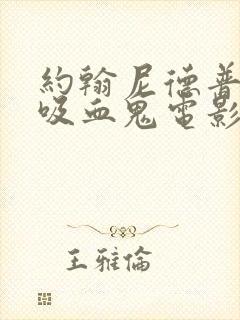 約翰尼德普
吸血鬼電影
王雅倫